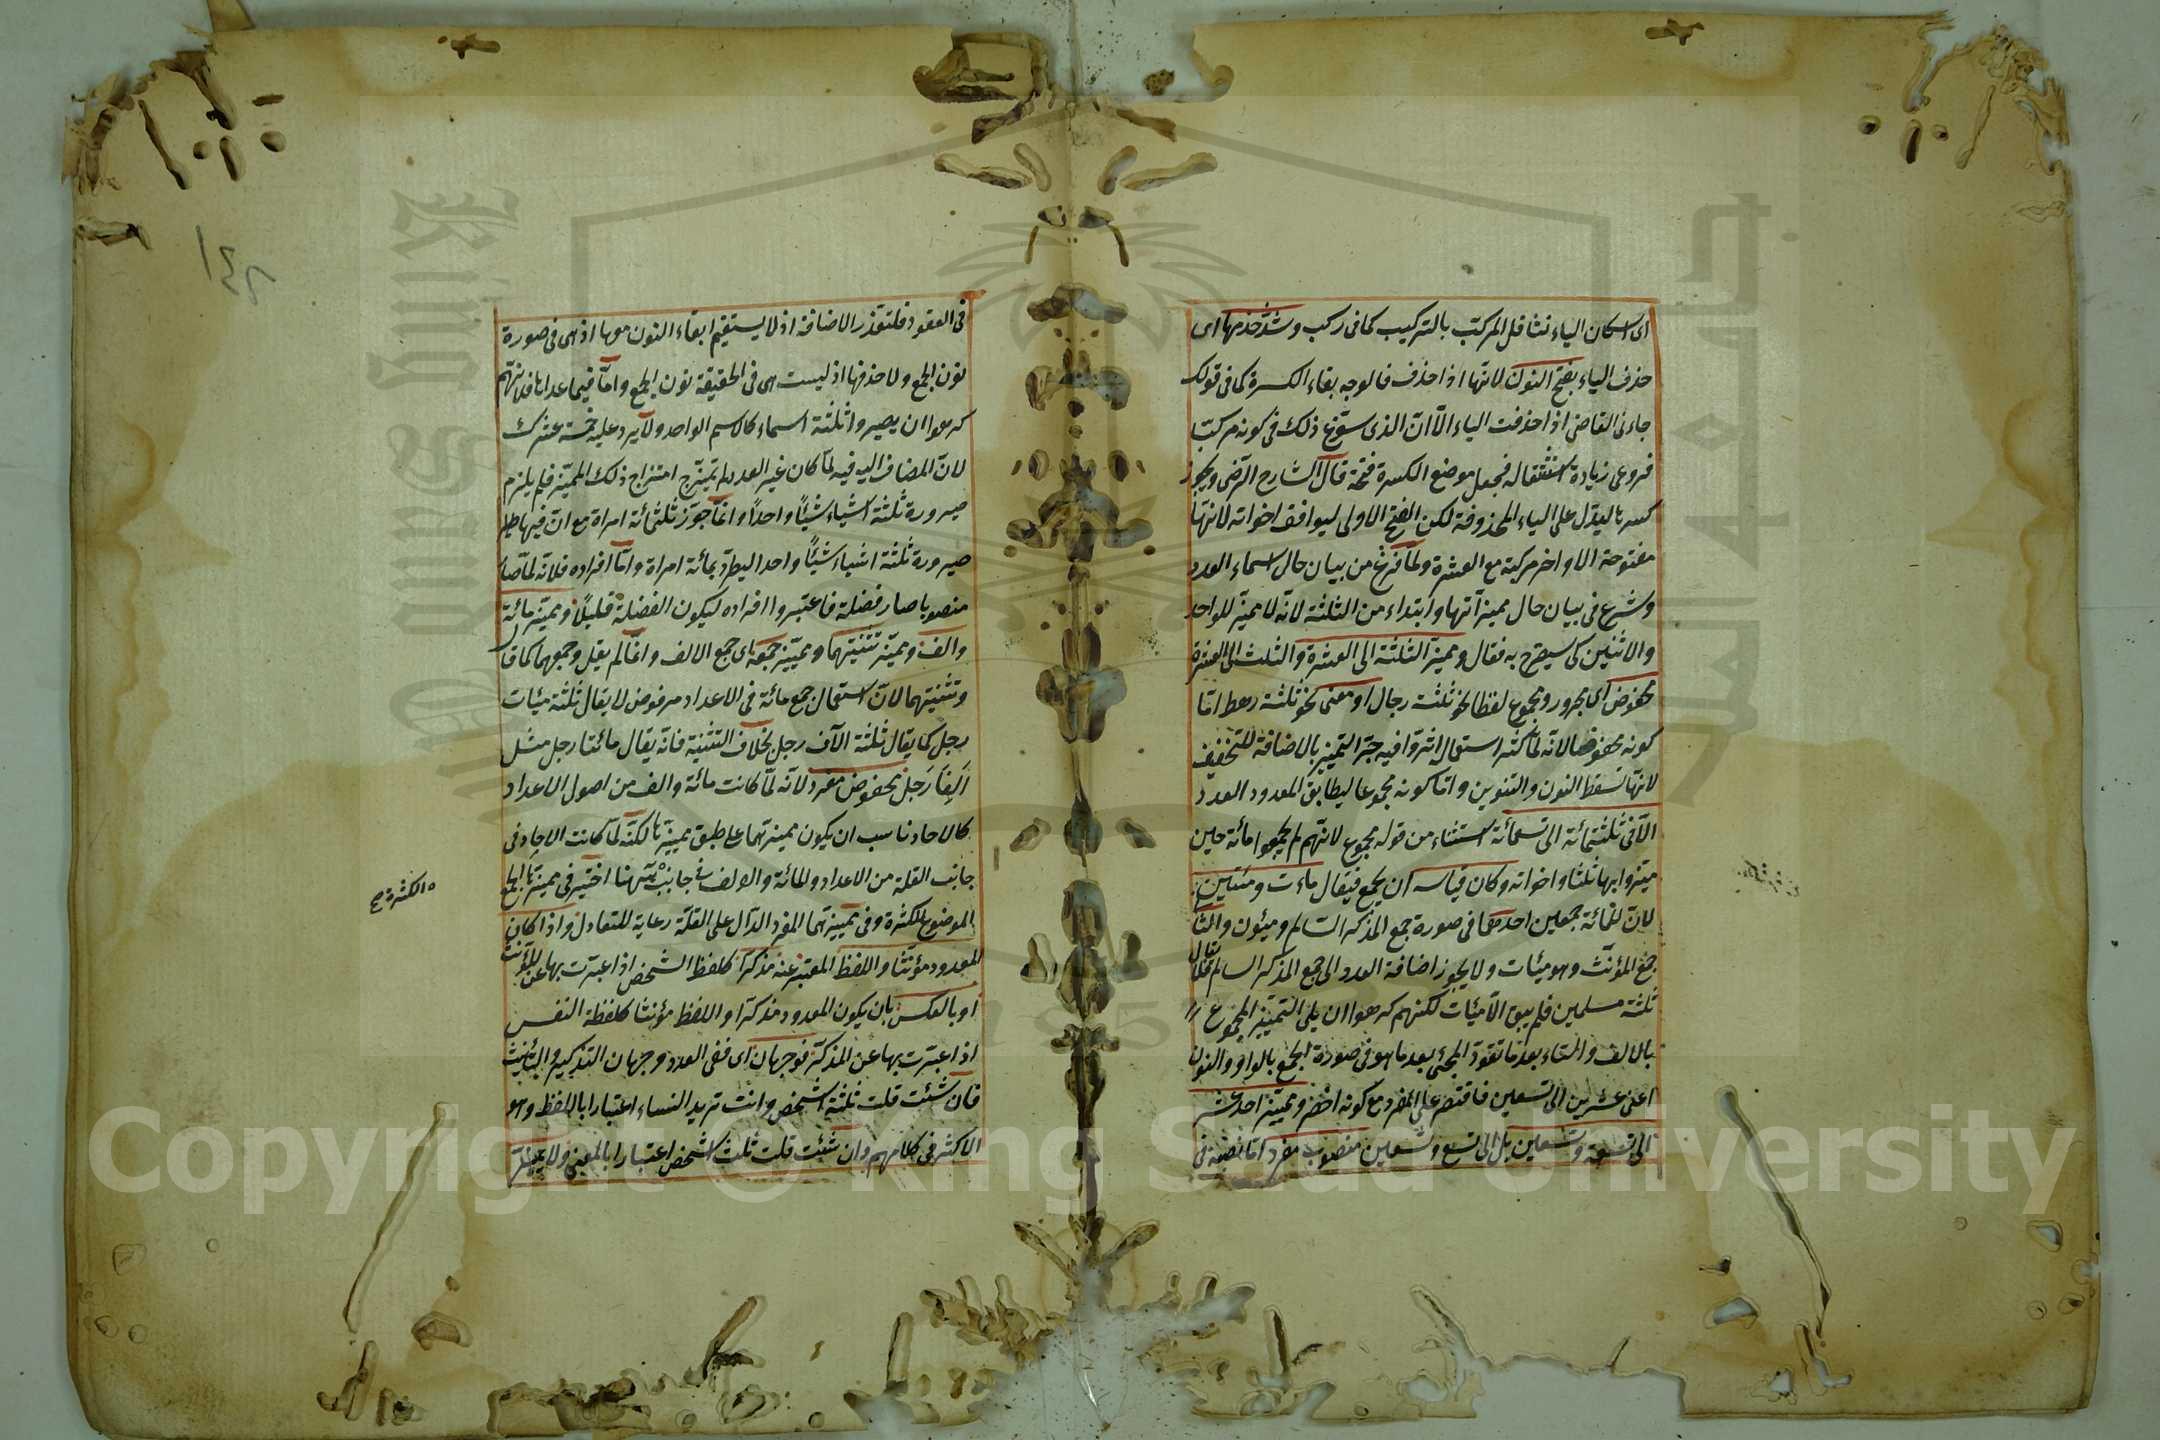 اى اسكان الياء لتثاقل المركب بالتركيب كما فى ركب وشذ حذفها اى
حذف الياء بفتح النون لانها اذا حذف فالوجه بقاء الكسرة كما فى قولك
جاءنى القاضى اذا حذفت الياء الا ان الذى سوغ ذلك فى كونه مركبا
فروعى زيادة استثقاله فجعل موضع الكسرة فتحة قال الشارح الرضى ويجوز
كسرها ليدل على الياء المحذوفة لكن الفتح الاولى ليوافق اخواته لانها
مفتوحة الاواخر مركبة مع العشرة ولما فرغ من بيان حال اسماء العدد
وشرع فى بيان حال مميزاتها وابتداء من الثلثة لانه لا مميز للواحد
والاثنين كما سيصرح به فقال ومميز الثلثة الى العشرة والثلث الى العشرة
مخفوض اى مجرور ومجموع لفظا نحو ثلثة رجال او معنى نحو ثلثة رهط اما
كونه مخفوضا لانه لما كثر استعماله اثروا فيه جر التميز بالاضافة للتخفيف
لانها تسقط النون والتنوين واما كونه مجموعا ليطابق المعدود العدد
الا فى ثلثمائة الى تسعمائة استثناء من قوله مجموع لانهم لم يجمعوا مائة حين
ميزوا بها ثلثا واخواته وكان قياسه ان يجمع فيقال مات ومئتين
لان للمائة جمعين احدهما فى صورة جمع المذكر السالم وميئون والثانى
جمع المؤنث وهو ميئات ولا يجوز اضافة العدد الى جمع المذكر السالم فلا يقال
ثلثة مسلمين فلم يبق الا ميئات لكنهم كرهوا ان يلى التمييز المجموع
بالالف والتاء بعد ما تعود المجئ بعد ما هو فى صورة الجمع بالواو والنون
اعنى عشرين الى تسعين فاقتصر على المفرد مع كونه اخصر ومميز احد عشر
الى تسعة وتسعين بل الى تسع وتسعين منصوب مفرد اما نصبه فى
فى العقود فلتعذر الاضافة اذ لا يستقيم ابقاء النون معها اذ هى فى صورة
نون الجمع ولا حذفها اذ ليست هى فى الحقيقة نون الجمع واما فيما عداها فلانهم
كرهوا ان يصيروا ثلثة اسماء كالاسم الواحد ولا يرد عليه خمسة عشرك
لان المضاف اليه فيه لما كان غير العدد لم يمتزج امتزاج ذلك المميز فلم يلزم
صيرورة ثلثة اشياء شيئا واحدا وانما جوز ثلثمائة امراة مع ان فيها
صيرورة ثلثة اشياء شيئا واحدا ليطرد بمائة امراة واما افراده فلانه لما صار
منصوبا صار فضلة فاعتبروا افراده ليكون الفضلة قليلا ومميز مائة
والف ومميز تثنيتهما ومميز جمعه اى جمع الالف وانما لم يقل وجمعهما كما قال
وتثنيتهما لان استعمال جمع مائة فى الاعداد مرفوض لا يقال ثلثة ميئات
رجل كما يقال ثلثة الاف رجل بخلاف التثنية فانه يقال مائتا رجل مثل
الفا رجل مخفوض مفرد لانه لما كانت مائة والف من اصول الاعداد
كالاحاد ناسب ان يكون مميزهما على طبق مميزها لكنه لما كانت الاحاد فى
جانب القلة من الاعداد والمائة والالف فى جانب اختير فى مميزها الجمع
الموضوع للكثرة وفى مميزهما المفرد الدال على القلة رعاية للتعادل واذا كان
المعدود مؤنثا واللفظ المعتبر عنه مذكرا كلفظ الشخص اذا عبرت بها عن المؤنث
او بالعكس بان يكون المعدود مذكرا واللفظ مؤنثا كلفظة النفس
اذا عبرت بها عن المذكر فوجهان اى ففى العدد وجهان التذكير والتأنيث
فان شئت قلت ثلثة اشخص وانت تريد النساء اعتبارا باللفظ وهو
الاكثر فى كلامهم وان شئت قلت ثلث اشخص اعتبارا بالمعنى ولا
الكثرة صح
King Saud University
جامعة الملك سعود
1957
Copyright © King Saud University